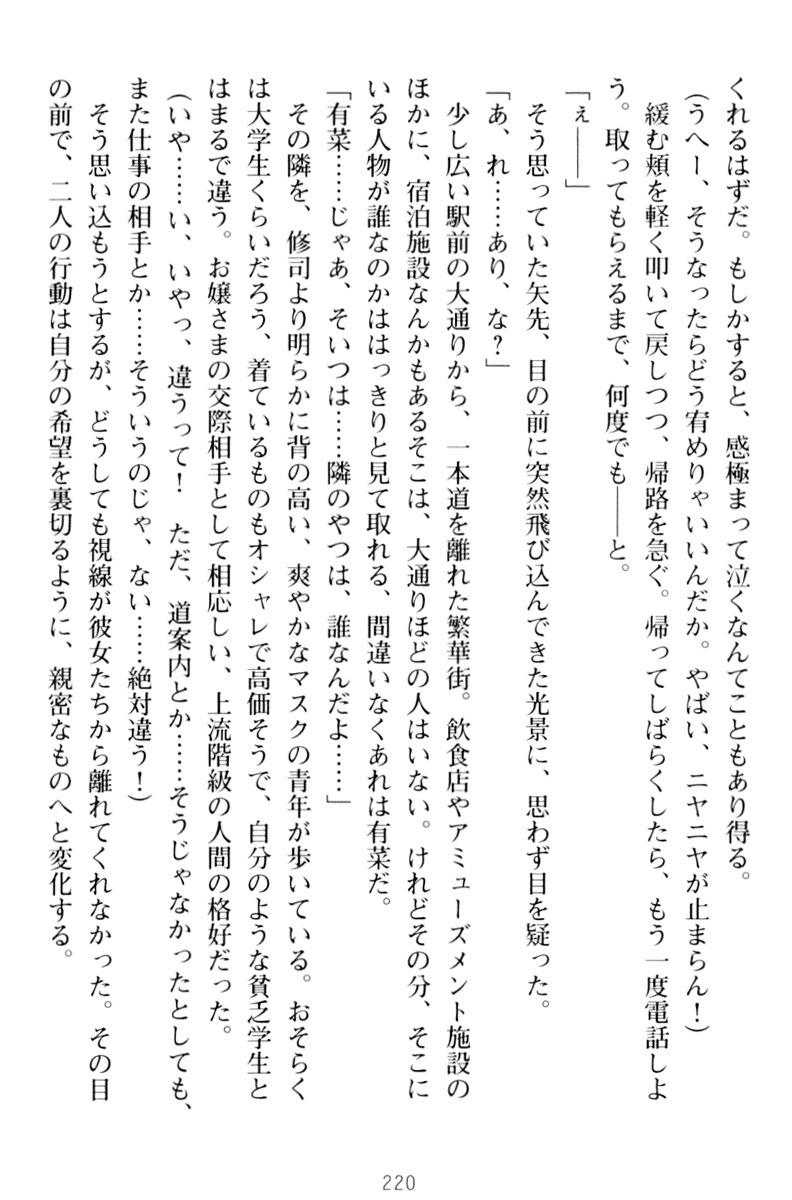 くれるはずだ。もしかすると、感極まって泣くなんてこともあり得る。
(うへー、そうなったらどう宥めりゃいいんだか。やばい、ニヤニヤが止まらん！)
　緩む頬を軽く叩いて戻しつつ、帰路を急ぐ。帰ってしばらくしたら、もう一度電話しよ
う。取ってもらえるまで、何度でも――と。
「ぇ――」
　そう思っていた矢先、目の前に突然飛び込んできた光景に、思わず目を疑った。
「あ、れ……あり、な？」
　少し広い駅前の大通りから、一本道を離れた繁華街。飲食店やアミューズメント施設の
ほかに、宿泊施設なんかもあるそこは、大通りほどの人はいない。けれどその分、そこに
いる人物が誰なのかははっきりと見て取れる、間違いなくあれは有菜だ。
「有菜……じゃあ、そいつは……隣のやつは、誰なんだよ……」
　その隣を、修司より明らかに背の高い、爽やかなマスクの青年が歩いている。おそらく
は大学生くらいだろう、着ているものもオシャレで高価そうで、自分のような貧乏学生と
はまるで違う。お嬢さまの交際相手として相応しい、上流階級の人間の格好だった。
(いや……い、いやっ、違うって！　ただ、道案内とか……そうじゃなかったとしても、
また仕事の相手とか……そういうのじゃ、ない……絶対違う！)
　そう思い込もうとするが、どうしても視線が彼女たちから離れてくれなかった。その目
の前で、二人の行動は自分の希望を裏切るように、親密なものへと変化する。
220